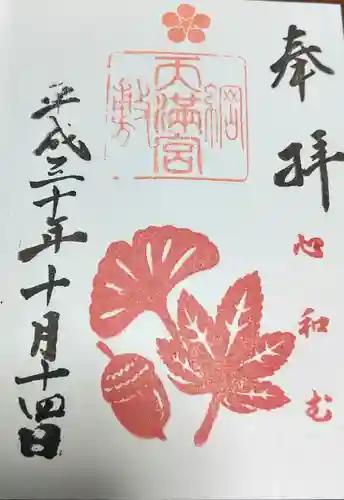 奉拝
心和む
綱敷
天満宮
平成三十年十月十四日